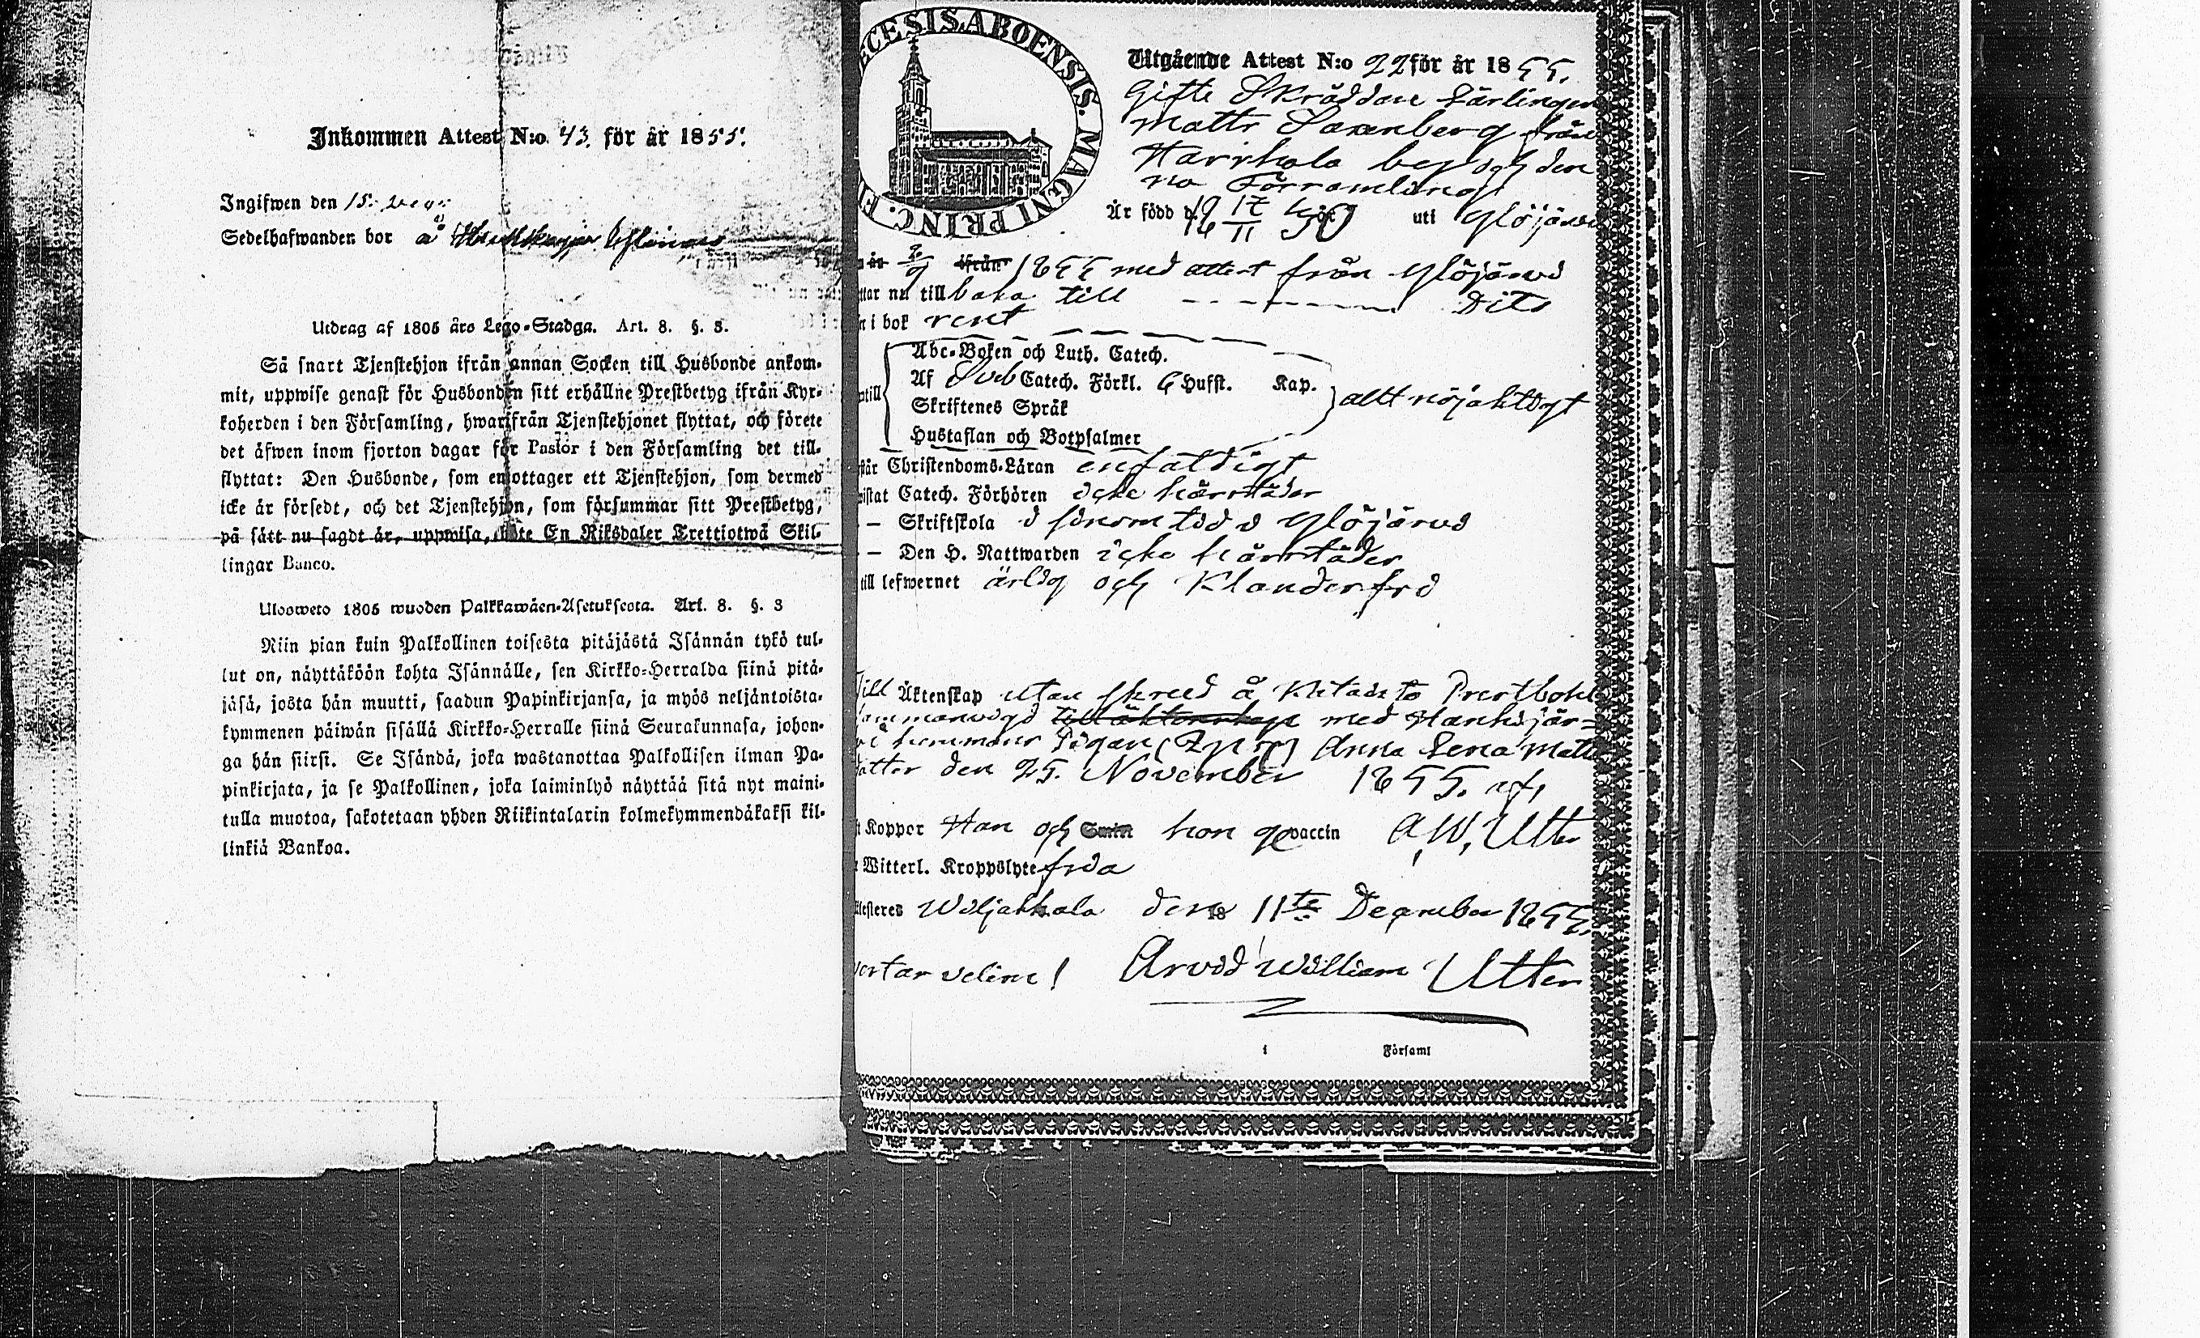 Inkommen Attest N:o 43. för år 1855.
Ingifwen den 15.
Sedelhafwanden bor å
Utdrag af 1805 års Lego-Stadga. Art. 8. §. 3.
Så snart Tjenstehjon ifrån annan Socken till Husbonde ankom-
mit, uppwise genast för Husbonden sitt erhållne Prestbetyg ifrån Kyr-
koherden i den Församling, hwarifrån Tjenstehjonet flyttat, och förete
det äfwen inom fjorton dagar för Pastor i den Församling det till-
flyttat: Den Husbonde, som emottager ett Tjenstehjon, som dermed
icke är försedt, och det Tjenstehjon, som försummar sitt Prestbetyg,
på sätt nu sagdt är, uppwisa, böte En Riksdaler Trettiotwå Skil-
lingar Banco.
Ulosweto 1805 wuoden Palkkawäen-Asetuksesta. Art. 8. §. 3
Niin pian kuin Palkollinen toisesta pitäjästä Isännän tykö tul-
lut on, näyttäköön kohta Isännälle, sen Kirkko-Herralda siinä pitä-
jäsä, josta hän muutti, saadun Papinkirjansa, ja myös neljäntoista-
kymmenen päiwän sisällä Kirkko-Herralle siinä Seurakunnasa, johon-
ga hän siirsi. Se Isändä, joka wastanottaa Palkollisen ilman Pa-
pinkirjata, ja se Palkollinen, joka laiminlyö näyttää sitä nyt maini-
tulla muotoa, sakotetaan yhden Riikintalarin kolmekymmendäkaksi kil-
linkiä Bankoa.
ECESIS. ABOENSIS. MAGNI PRINC. F
Utgående Attest N:o 22 för år 1855.
Gifte Skräddare Lärlingen
Matts Saxenberg från
Harrhala by och den
na Församling
Är född d. uti Ylöjärvi
ifrån 1855 med attest från Ylöjärvi
ttar nu tillbaka till Dito
n i bok rent
Abc-Boken och Luth. Catech.
Af Sveb Catech. Förkl. 6 Hufst. Kap.
Skriftenes Språk
Hustaflan och Botpsalmer
allt nöjaktigt
står Christendoms-Läran enfaldigt
wistat Catech. Förhören icke härstädes
— Skriftskola i sinom tid i Ylöjärvi
— Den H. Nattwarden icke härstädes
till lefwernet ärlig och Klanderfri
Till Äktenskap utan
sammanvigd till äktenskap med Hanhijär-
vi hemmans Pigan Anna Lena Matts
dotter den 25. November 1855. af,
t Koppor Han och Smitt hon gevaccin A. W. Utter
Witterl. Kroppslyte fria
Wiljakkala den 18 11te December 1855.
vertas velim! Arvid William Utter
i Församl